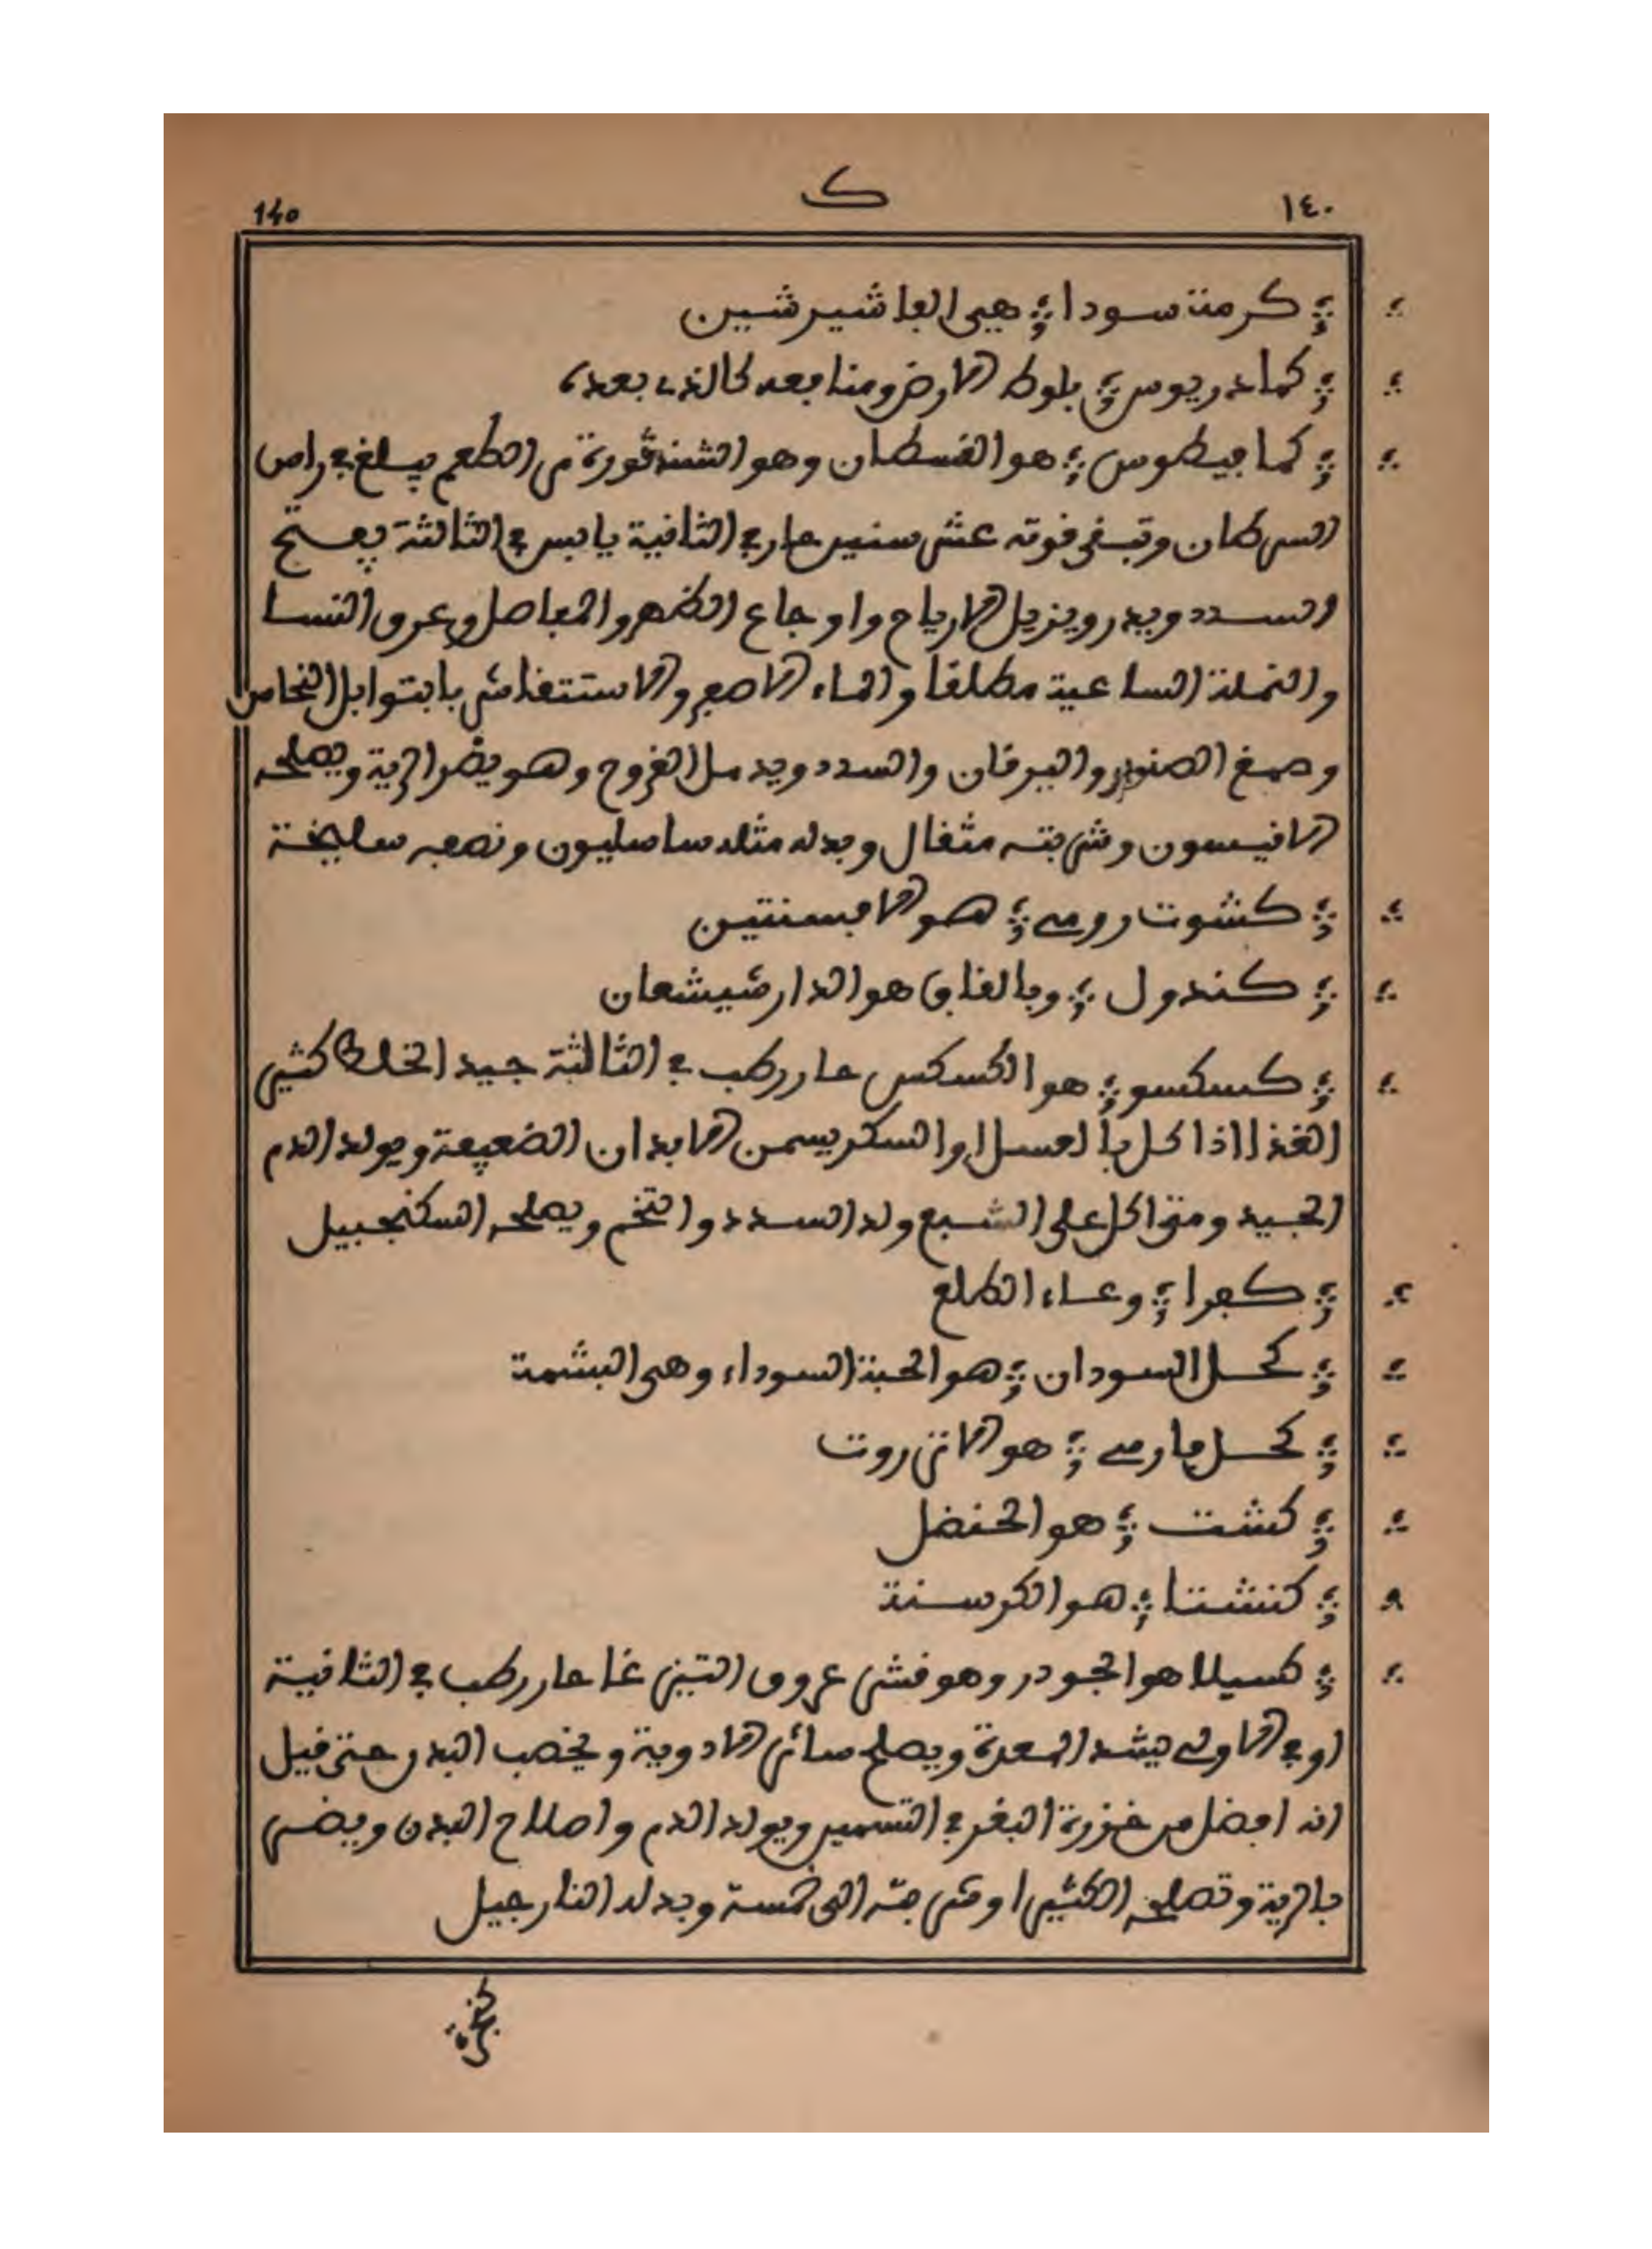 ١٤٠ ك 140
كرمة سودا هي الفاشيرشين
كمادريوس بلوط الارض ومنافعه كالذي بعده
كمافيطوس هو القسطان وهو الشندقورة مر الطعم يبلغ في راس
السرطان وتبقى قوته عشر سنين حار في الثانية يابس في الثالثة يفتح
السدد ويدر ويزيل الارياح واوجاع الظهر والمفاصل وعرق النسا
والنملة الساعية مطلقا والماء الاصفر والاستسقا شربا بتوابل النحاس
وصمغ الصنوبر واليرقان والسدد ويدمل القروح وهو يضر الرية ويصلحه
الانيسون وشربته مثقال وبدله مثله ساساليون ونصفه سليخة
كشوت رومي هو الافسنتين
كندول وبالقاف هو الدارشيشعان
كسكسو هو الكسكس حار رطب في الثالثة جيد الخلط كثير
الغذا اذا اكل بالعسل او السكر يسمن الابدان الضعيفة ويولد الدم
الجيد ومتى اكل على الشبع ولد السدد والتخم ويصلحه السكنجبيل
كفرا وعاء الطلع
كحل السودان هو الحبة السوداء وهي البشمة
كحل فارسي هو الانزروت
كشت هو الحنضل
كنشتا هو الكرسنة
كسيلا هو الجودر وهو قشر عروق التين غا حار رطب في الثانية
او في الاولى يشد المعدة ويصلح سائر الادوية ويخصب البدن حتى قيل
انه افضل من خزرة البقر في التسمين ويولد الدم واصلاح البدن ويضر
بالرية وتصلحه الكثيرا وشربته الى خمسة وبدله النارجيل